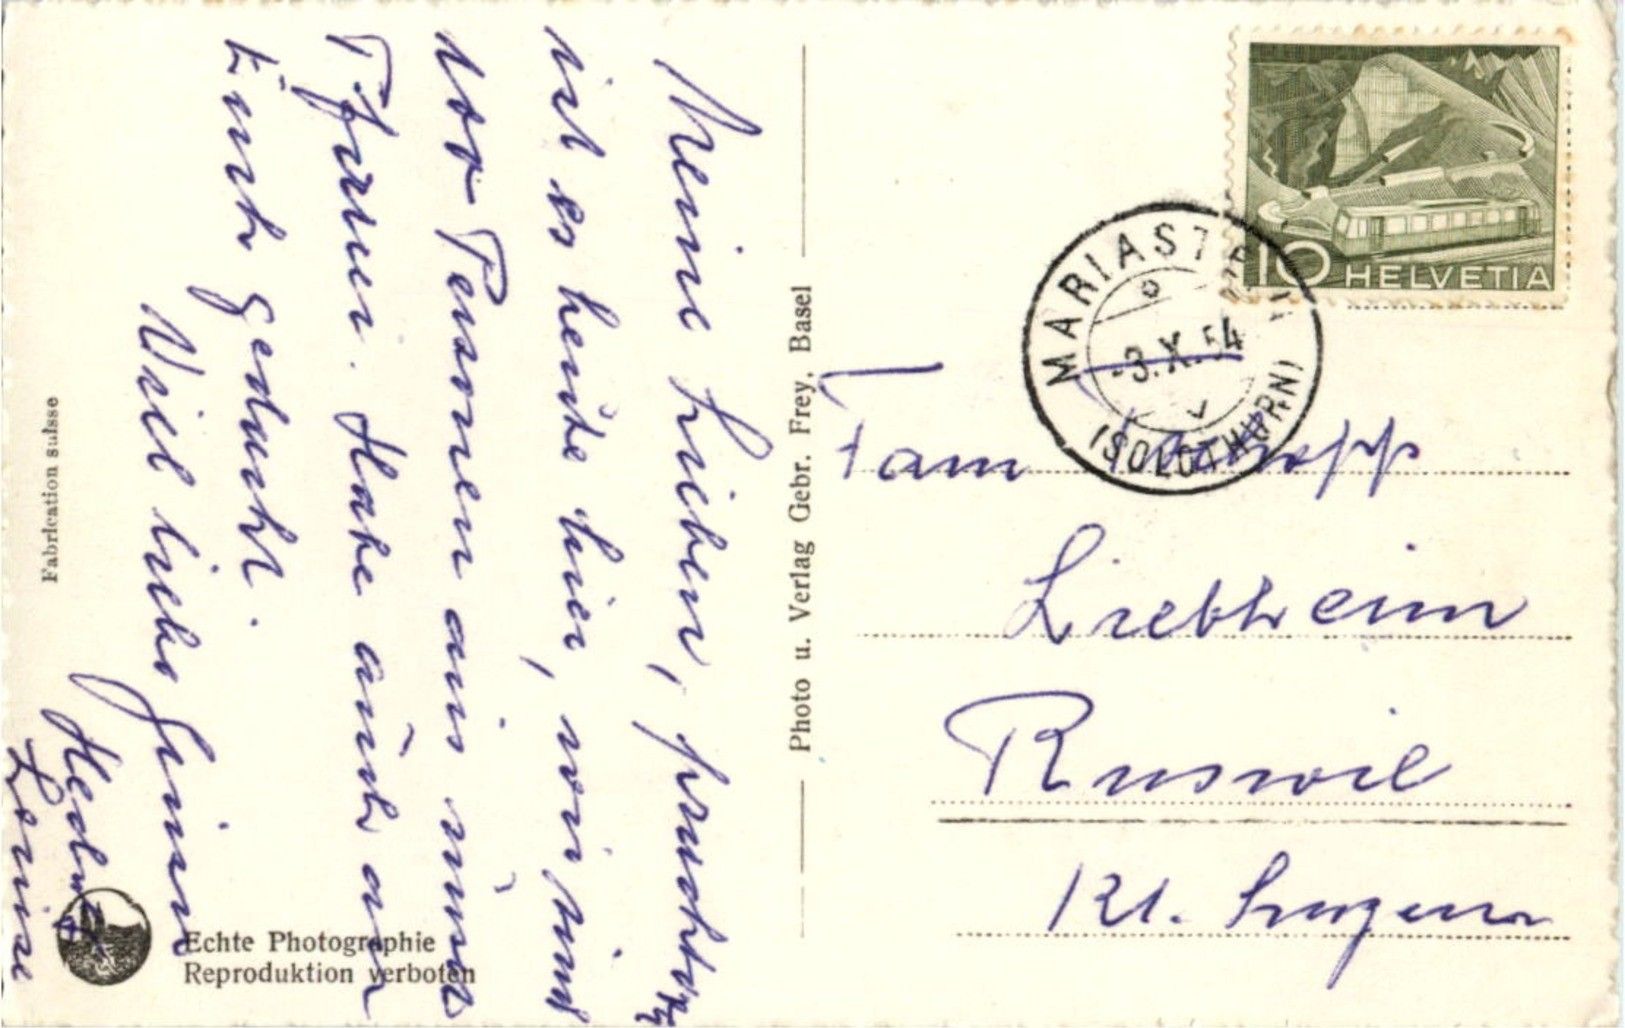 Meine Lieben, prachtig
ist es heute hier, wir sind
Personen aus uns
Pfarrei. Habe auch an
Euch gedacht.
Viel liebe Grüsse
Hedwig
Louise
Fabrication suisse
Echte Photographie
Reproduktion verboten
Photo u. Verlag Gebr. Frey, Basel
10 HELVETIA
MARIASTEIN
-3.X.54
(SOLOTHURN)
Fam
Liebheim
Ruswil
Kt. Luzern